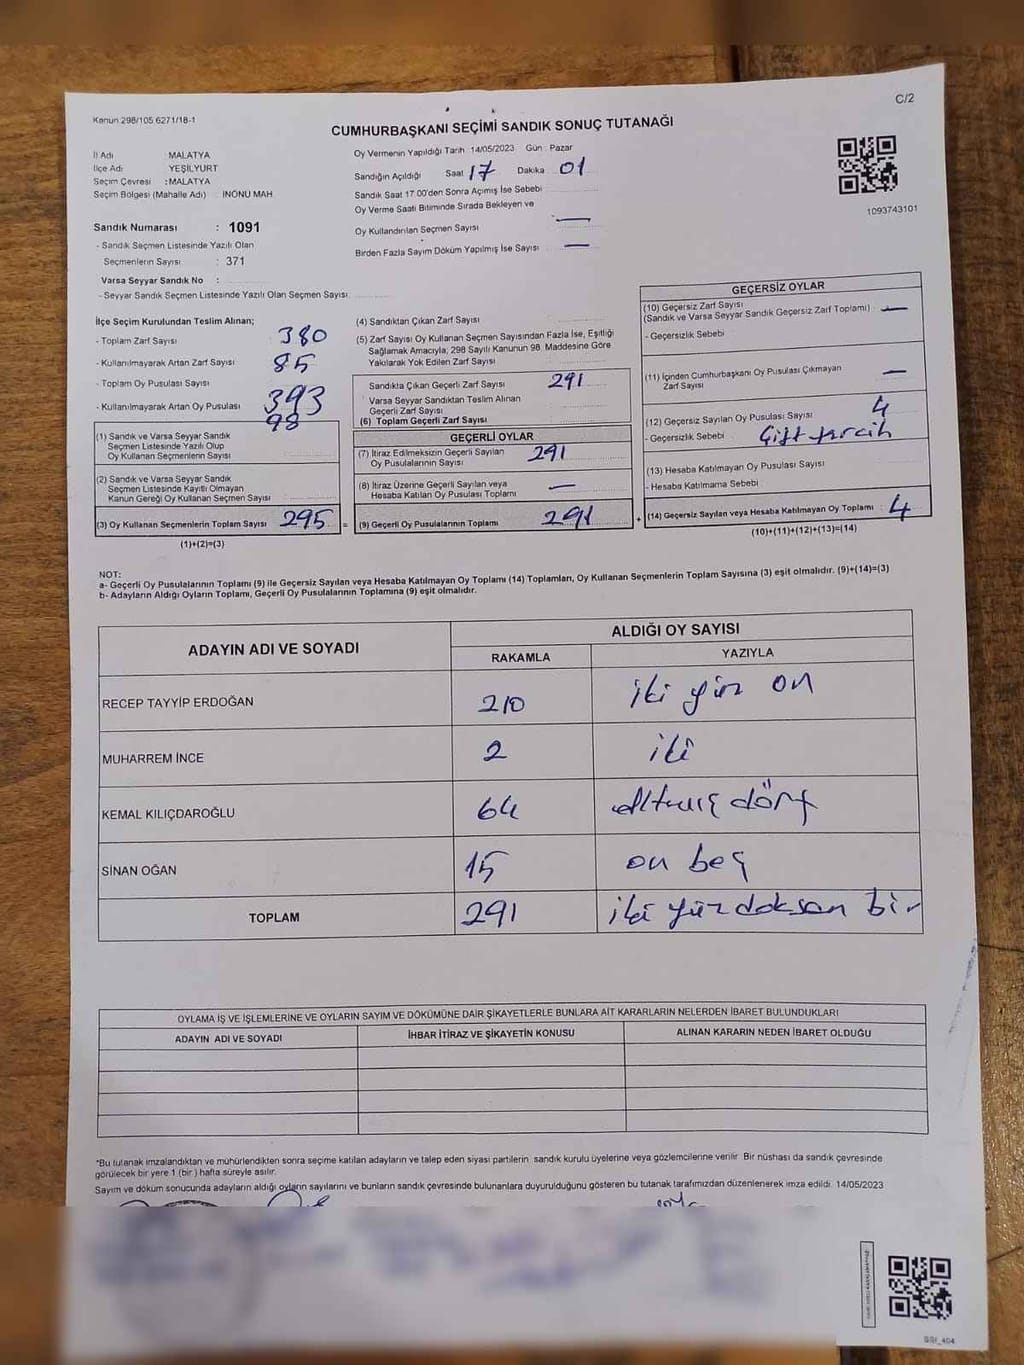 C/2
Kanun 298/105 6271/18-1
CUMHURBAŞKANI SEÇİMİ SANDIK SONUÇ TUTANAĞI
İl Adı MALATYA
İlçe Adı YEŞİLYURT
Seçim Çevresi : MALATYA
Seçim Bölgesi (Mahalle Adı) İNÖNÜ MAH
Sandık Numarası : 1091
- Sandık Seçmen Listesinde Yazılı Olan
Seçmenlerin Sayısı : 371
Varsa Seyyar Sandık No :
- Seyyar Sandık Seçmen Listesinde Yazılı Olan Seçmen Sayısı
Oy Vermenin Yapıldığı Tarih 14/05/2023 Gün : Pazar
Sandığın Açıldığı Saat 17 Dakika 01
Sandık Saat 17 00'den Sonra Açımış İse Sebebi
Oy Verme Saati Bitiminde Sırada Bekleyen ve
Oy Kullandırılan Seçmen Sayısı —
Birden Fazla Sayım Döküm Yapılmış İse Sayısı —
1093743101
İlçe Seçim Kurulundan Teslim Alınan;
- Toplam Zarf Sayısı 380
- Kullanılmayarak Artan Zarf Sayısı 85
- Toplam Oy Pusulası Sayısı 393
- Kullanılmayarak Artan Oy Pusulası 98
(1) Sandık ve Varsa Seyyar Sandık
Seçmen Listesinde Yazılı Olup
Oy Kullanan Seçmenlerin Sayısı
(2) Sandık ve Varsa Seyyar Sandık
Seçmen Listesinde Kayıtlı Olmayan
Kanun Gereği Oy Kullanan Seçmen Sayısı
(3) Oy Kullanan Seçmenlerin Toplam Sayısı 295 =
(1)+(2)=(3)
(4) Sandıktan Çıkan Zarf Sayısı
(5) Zarf Sayısı Oy Kullanan Seçmen Sayısından Fazla İse, Eşitliği
Sağlamak Amacıyla; 298 Sayılı Kanunun 98. Maddesine Göre
Yakılarak Yok Edilen Zarf Sayısı
Sandıkta Çıkan Geçerli Zarf Sayısı 291
Varsa Seyyar Sandıktan Teslim Alınan
Geçerli Zarf Sayısı
(6) Toplam Geçerli Zarf Sayısı
GEÇERLİ OYLAR
(7) İtiraz Edilmeksizin Geçerli Sayılan
Oy Pusulalarının Sayısı 291
(8) İtiraz Üzerine Geçerli Sayılan veya
Hesaba Katılan Oy Pusulası Toplamı —
(9) Geçerli Oy Pusulalarının Toplamı 291 +
GEÇERSİZ OYLAR
(10) Geçersiz Zarf Sayısı
(Sandık ve Varsa Seyyar Sandık Geçersiz Zarf Toplamı) —
- Geçersizlik Sebebi
(11) İçinden Cumhurbaşkanı Oy Pusulası Çıkmayan
Zarf Sayısı —
(12) Geçersiz Sayılan Oy Pusulası Sayısı 4
- Geçersizlik Sebebi Çift tercih
(13) Hesaba Katılmayan Oy Pusulası Sayısı
- Hesaba Katılmama Sebebi
(14) Geçersiz Sayılan veya Hesaba Katılmayan Oy Toplamı : 4
(10)+(11)+(12)+(13)=(14)
NOT:
a- Geçerli Oy Pusulalarının Toplamı (9) ile Geçersiz Sayılan veya Hesaba Katılmayan Oy Toplamı (14) Toplamları, Oy Kullanan Seçmenlerin Toplam Sayısına (3) eşit olmalıdır. (9)+(14)=(3)
b- Adayların Aldığı Oyların Toplamı, Geçerli Oy Pusulalarının Toplamına (9) eşit olmalıdır.
ADAYIN ADI VE SOYADI ALDIĞI OY SAYISI
RAKAMLA YAZIYLA
RECEP TAYYİP ERDOĞAN 210 iki yüz on
MUHARREM İNCE 2 iki
KEMAL KILIÇDAROĞLU 64 altmış dört
SİNAN OĞAN 15 on beş
TOPLAM 291 iki yüz doksan bir
OYLAMA İŞ VE İŞLEMLERİNE VE OYLARIN SAYIM VE DÖKÜMÜNE DAİR ŞİKAYETLERLE BUNLARA AİT KARARLARIN NELERDEN İBARET BULUNDUKLARI
ADAYIN ADI VE SOYADI İHBAR İTİRAZ VE ŞİKAYETİN KONUSU ALINAN KARARIN NEDEN İBARET OLDUĞU
*Bu tutanak imzalandıktan ve mühürlendikten sonra seçime katılan adayların ve talep eden siyasi partilerin sandık kurulu üyelerine veya gözlemcilerine verilir Bir nüshası da sandık çevresinde
görülecek bir yere 1 (bir ) hafta süreyle asılır.
Sayım ve döküm sonucunda adayların aldığı oyların sayılarını ve bunların sandık çevresinde bulunanlara duyurulduğunu gösteren bu tutanak tarafımızdan düzenlenerek imza edildi. 14/05/2023